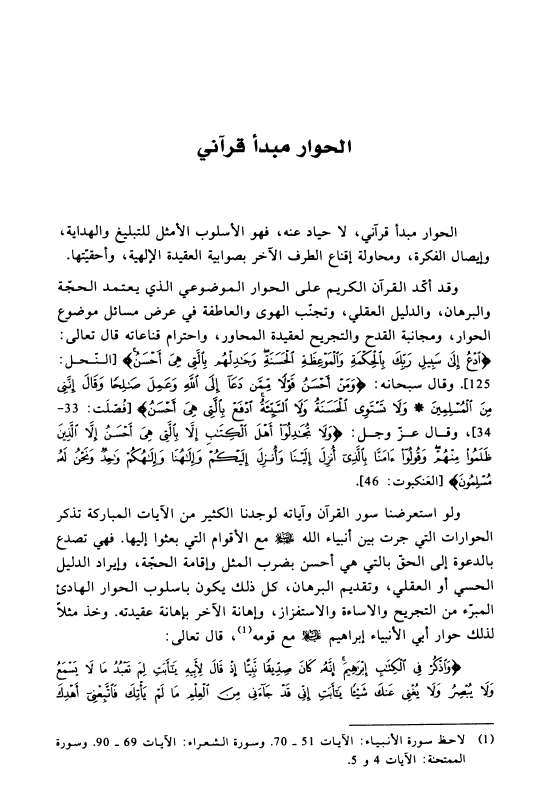 الحوار مبدأ قرآني
الحوار مبدأ قرآني، لا حياد عنه، فهو الأسلوب الأمثل للتبليغ والهداية،
وإيصال الفكرة، ومحاولة إقناع الطرف الآخر بصوابية العقيدة الإلهية، وأحقيّتها.
وقد أكّد القرآن الكريم على الحوار الموضوعي الذي يعتمد الحجّة
والبرهان، والدليل العقلي، وتجنّب الهوى والعاطفة في عرض مسائل موضوع
الحوار، ومجانبة القدح والتجريح لعقيدة المحاور، واحترام قناعاته قال تعالى:
﴿ٱدْعُ إِلَىٰ سَبِيلِ رَبِّكَ بِٱلْحِكْمَةِ وَٱلْمَوْعِظَةِ ٱلْحَسَنَةِ وَجَٰدِلْهُم بِٱلَّتِى هِىَ أَحْسَنُ﴾ [النحل:
125]. وقال سبحانه: ﴿وَمَنْ أَحْسَنُ قَوْلًا مِّمَّن دَعَآ إِلَى ٱللَّهِ وَعَمِلَ صَٰلِحًا وَقَالَ إِنَّنِى
مِنَ ٱلْمُسْلِمِينَ * وَلَا تَسْتَوِى ٱلْحَسَنَةُ وَلَا ٱلسَّيِّئَةُ ٱدْفَعْ بِٱلَّتِى هِىَ أَحْسَنُ﴾ [فُصّلَت: 33-
34]، وقال عزّ وجل: ﴿وَلَا تُجَٰدِلُوٓا۟ أَهْلَ ٱلْكِتَٰبِ إِلَّا بِٱلَّتِى هِىَ أَحْسَنُ إِلَّا ٱلَّذِينَ
ظَلَمُوا۟ مِنْهُمْ وَقُولُوٓا۟ ءَامَنَّا بِٱلَّذِىٓ أُنزِلَ إِلَيْنَا وَأُنزِلَ إِلَيْكُمْ وَإِلَٰهُنَا وَإِلَٰهُكُمْ وَٰحِدٌ وَنَحْنُ لَهُۥ
مُسْلِمُونَ﴾ [العَنكبوت: 46].
ولو استعرضنا سور القرآن وآياته لوجدنا الكثير من الآيات المباركة تذكر
الحوارات التي جرت بين أنبياء الله مع الأقوام التي بعثوا إليها. فهي تصدع
بالدعوة إلى الحقّ بالتي هي أحسن بضرب المثل وإقامة الحجّة، وإيراد الدليل
الحسي أو العقلي، وتقديم البرهان، كل ذلك يكون باسلوب الحوار الهادئ
المبرّء من التجريح والاساءة والاستفزاز، وإهانة الآخر بإهانة عقيدته. وخذ مثلاً
لذلك حوار أبي الأنبياء إبراهيم مع قومه(1)، قال تعالى:
﴿وَٱذْكُرْ فِى ٱلْكِتَٰبِ إِبْرَٰهِيمَ إِنَّهُۥ كَانَ صِدِّيقًا نَّبِيًّا إِذْ قَالَ لِأَبِيهِ يَٰٓأَبَتِ لِمَ تَعْبُدُ مَا لَا يَسْمَعُ
وَلَا يُبْصِرُ وَلَا يُغْنِى عَنكَ شَيْـًٔا يَٰٓأَبَتِ إِنِّى قَدْ جَآءَنِى مِنَ ٱلْعِلْمِ مَا لَمْ يَأْتِكَ فَٱتَّبِعْنِىٓ أَهْدِكَ
(1) لاحظ سورة الأنبياء: الآيات 51 ـ 70. وسورة الشعراء: الآيات 69 ـ 90. وسورة
الممتحنة: الآيات 4 و 5.